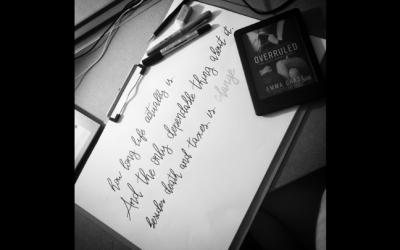 How long life actually is
And the only dependable thing about it.
besides death and taxes is change
OVERRULED
EMMA CHASE